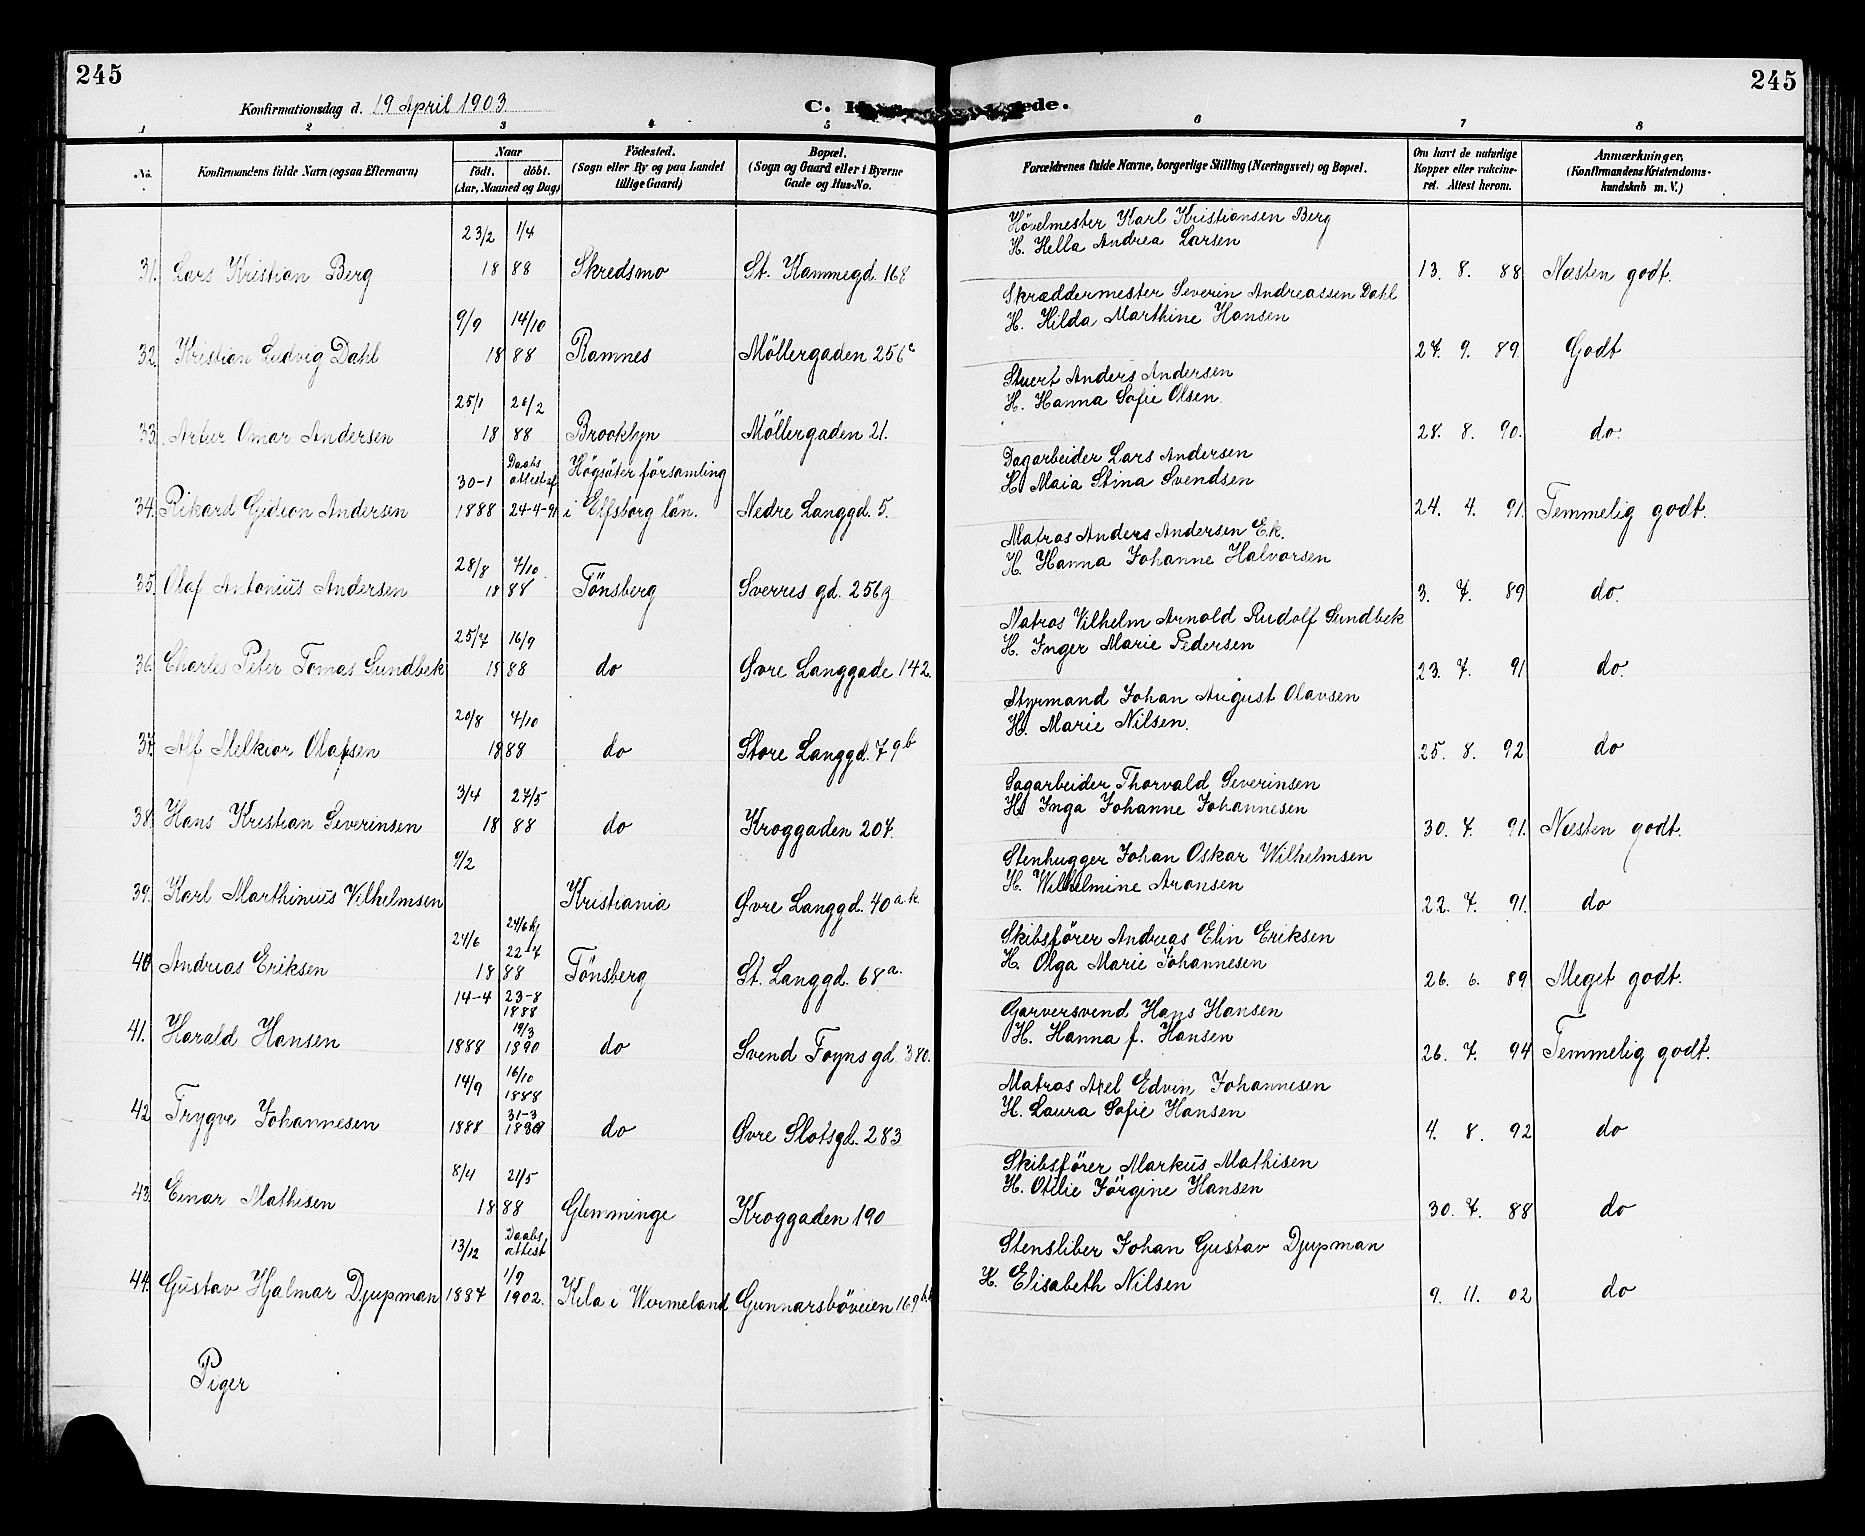 245
245
Konfirmationsdag d. 19 April 1903
C. ede.
1 2 3 4 5 6 7 8
No.
Konfirmandens fulde Navn (ogsaa Efternavn)
Naar
født. døbt.
(Aar, Maaned og Dag)
Fødested.
(Sogn eller By og paa Landet
tillige Gaard)
Bopæl.
(Sogn og Gaard eller i Byerne
Gade og Hus-No.
Forældrenes fulde Navne, borgerlige Stilling (Næringsvei) og Bopæl.
Om havt de naturlige
Kopper eller vakcine-
ret. Attest herom.
Anmærkninger,
(Konfirmandens Kristendoms-
kundskab m. V.)
23/2 1/4 Høvelmester Karl Kristiansen Berg
H. Hella Andrea Larsen
31. Lars Kristian Berg 18 88 Skredsmo St. Kammegd. 168 13. 8. 88 Næsten godt.
9/9 14/10 Skræddermester Severin Andreassen Dahl
H. Hilda Marthine Hansen
32. Kristian Ludvig Dahl 18 88 Ramnes Möllergaden 256c 27. 9. 89. Godt
25/1 26/2 Stuert Anders Andersen
H. Hanna Sofie Olsen.
33. Artur Omar Andersen 18 88 Brooklyn Möllergaden 21. 28. 8. 90. do.
30-1 Daabsattest af Högsäter församling Dagarbeider Lars Andersen
H. Maia Stina Svendsen
34. Rikard Gideon Andersen 1888 24-4-91 i Elfsborg län. Nedre Langgd. 5. 24. 4. 91. Temmelig godt.
28/8 7/10 Matros Anders Andersen Ek.
H. Hanna Johanne Halvorsen
35. Olaf Antonius Andersen 18 88 Tönsberg Sverres gd. 256g 3. 7. 89 do.
25/7 16/9 Matros Vilhelm Arnold Rudolf Sundbek
H. Inger Marie Pedersen
36. Charles Peter Tomas Sundbek 18 88 do Øvre Langgade 142. 23. 7. 91 do.
20/8 7/10 Styrmand Johan August Olavsen
H. Marie Nilsen.
37. Alf Melkior Olafsen 18 88 do Store Langgd. 79b 25. 8. 92 do
3/4 27/5 Sagarbeider Thorvald Severinsen
H. Inga Johanne Johannesen
38. Hans Kristian Severinsen 18 88 do Kroggaden 207. 30. 7. 91. Næsten godt.
9/2 Stenhugger Johan Oskar Wilhelmsen
H. Wilhelmine Aronsen
39. Karl Marthinius Vilhelmsen Kristiania Øvre Langgd. 40 a.k. 22. 7. 91. do
24/6 24/6 hj 22-7 Skibsförer Andreas Elin Eriksen
H. Olga Marie Johannesen
40. Andreas Eriksen 18 88 Tönsberg St. Langgd. 68a. 26. 6. 89 Meget godt.
14-4 23-8 1888 19/3 Garversvend Hans Hansen
H. Hanna f. Hansen
41. Harald Hansen 1888 1890 do Svend Foyns gd. 380. 26. 7. 94 Temmelig godt.
14/9 16/10 1888 31-3 Matros Axel Edvin Johannesen
H. Laura Sofie Hansen
42 Trygve Johannesen 1888 do Øvre Slotsgd. 283 4. 8. 92 do
8/4 21/5 Skibsförer Markus Mathisen
H. Otilie Jörgine Hansen
43. Einar Mathisen 18 88 Glemminge Kroggaden 190 30. 7. 88 do
13/12 Daabsattest 1/9 Stensliber Johan Gustav Djupman
H. Elisabeth Nilsen
44. Gustav Hjalmar Djupman 1887 1902. Kila i Wermeland Gunnarsböveien 169 9. 11. 02 do
Piger